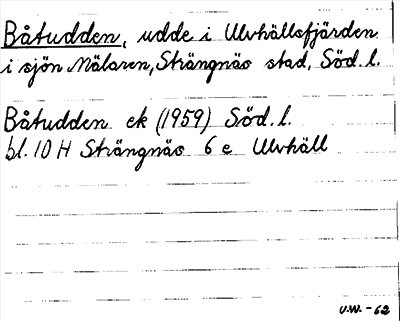 Båtudden, udde i Ulvhällsfjärden
i sjön Mälaren, Strängnäs stad, Söd. l.
Båtudden ek (1959) Söd. l.
bl. 10 H Strängnäs 6 e Ulvhäll
U.W. - 62